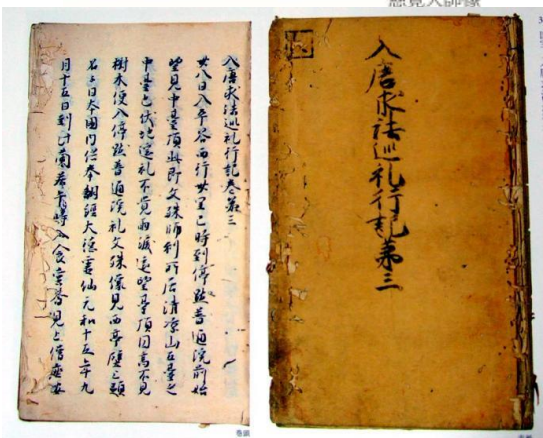 慈覺大師像
入唐求法巡礼行記第三
入唐求法巡礼行記巻第三
廿八日入平谷西行卅里巳時到停點普通院前始
望見中臺頂此即文殊師利所居清凉山五臺之
中臺也伏地遥礼不覚雨涙遥望臺頂圓高不見
樹木便入停點普通院礼文殊像見西亭壁上題
名云日本國内供奉翻經大徳霊仙元和十五年九
月十五日到此蘭若 時入食堂 見上僧座
巻頭